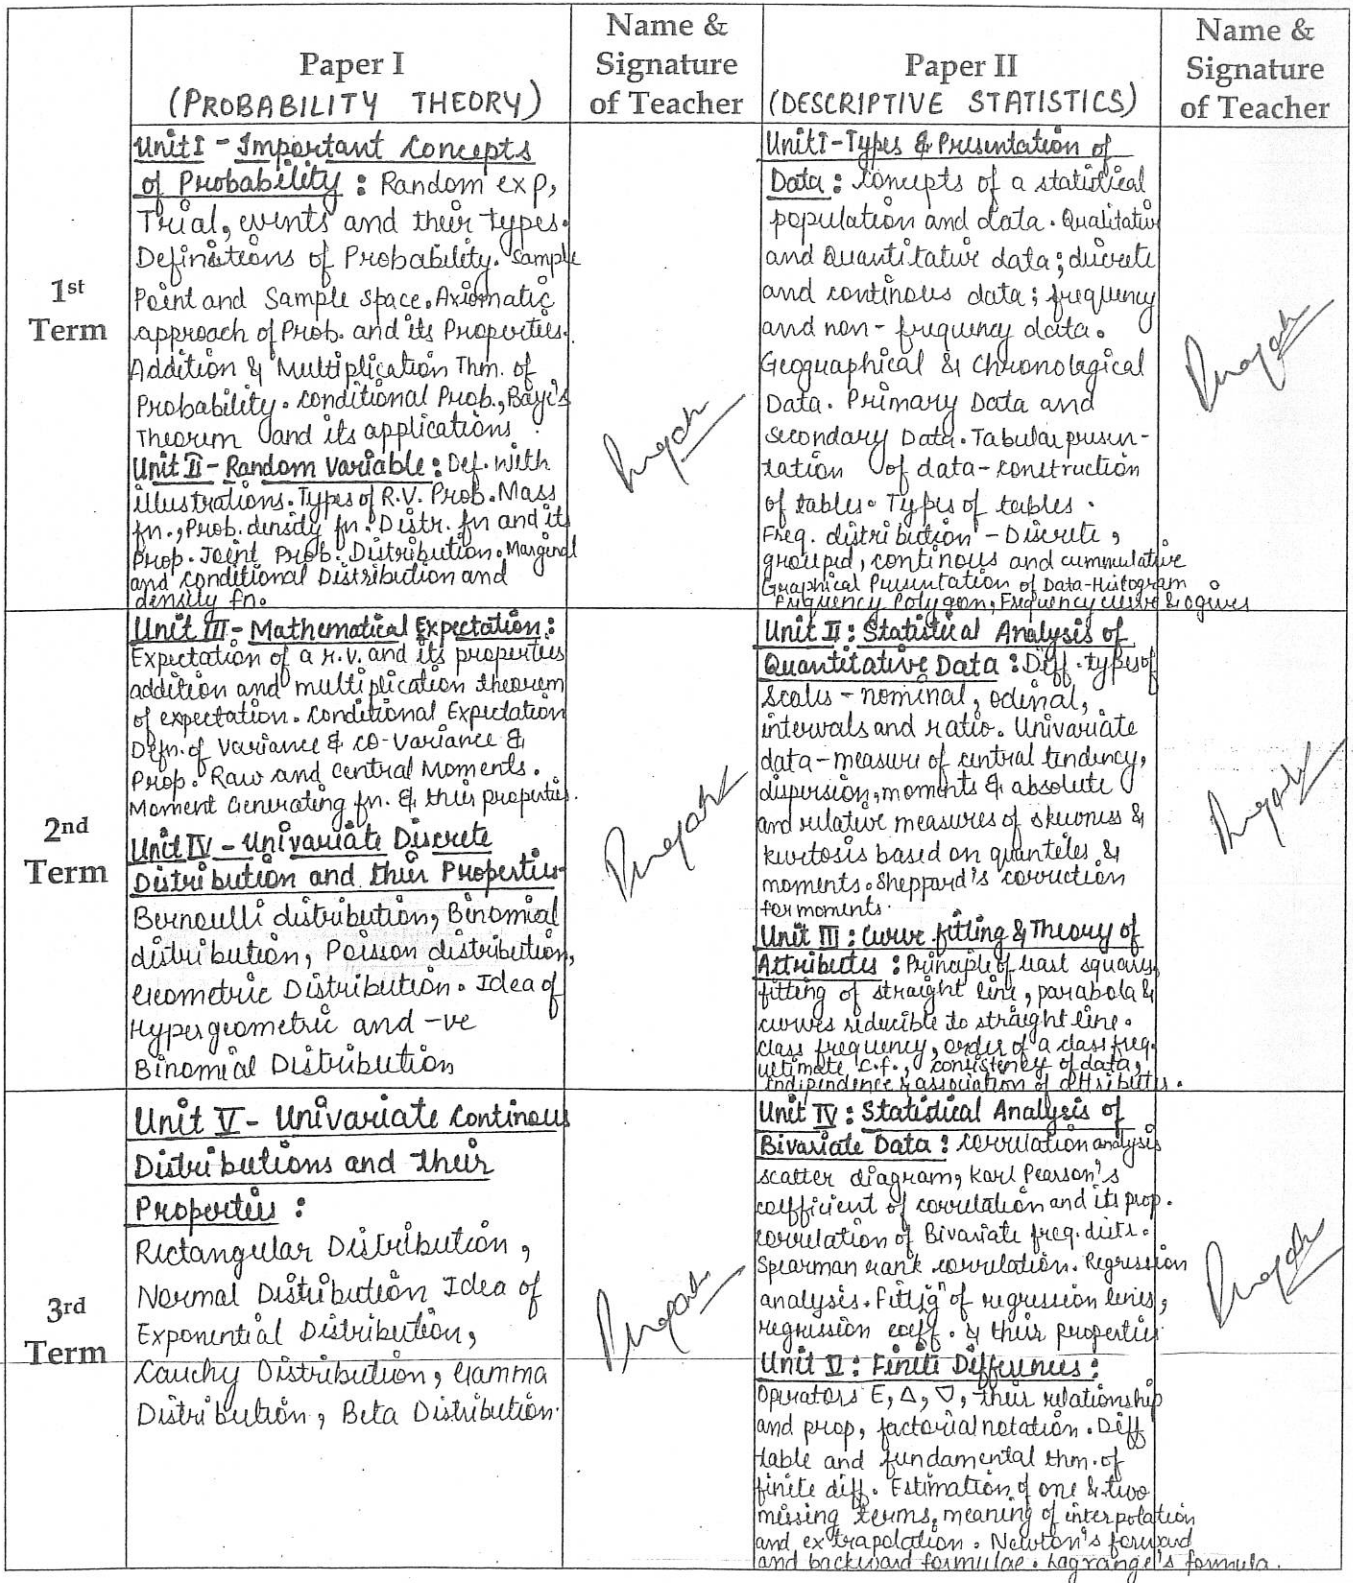 Paper I
(PROBABILITY THEORY)
Name &
Signature
of Teacher
Paper II
(DESCRIPTIVE STATISTICS)
Name &
Signature
of Teacher
1st
Term
Unit I - Important Concepts
of Probability : Random exp,
Trial, events and their types.
Definitions of Probability. Sample
Point and Sample space. Axiomatic
approach of Prob. and its Properties.
Addition & Multiplication Thm. of
Probability. Conditional Prob., Baye's
Theorem and its applications.
Unit II - Random Variable : Def. with
illustrations. Types of R.V. Prob. Mass
fn., Prob. density fn. Distr. fn and its
Prop. Joint Prob. Distribution. Marginal
and conditional Distribution and
density fn.
Unit I - Types & Presentation of
Data : Concepts of a statistical
population and data. Qualitative
and Quantitative data; discrete
and continous data; frequency
and non-frequency data.
Geographical & Chronological
Data. Primary Data and
Secondary Data. Tabular presen-
tation of data - construction
of tables. Types of tables.
Freq. distribution - Discrete,
grouped, continous and cummulative
Graphical Presentation of Data - Histogram
Frequency Polygon, Frequency curve & ogives
2nd
Term
Unit III - Mathematical Expectation :
Expectation of a r.v. and its properties
addition and multiplication theorem
of expectation. Conditional Expectation
Defn. of Variance & Co-Variance &
Prop. Raw and Central Moments.
Moment Generating fn. & their properties.
Unit IV - Univariate Discrete
Distribution and their Properties
Bernoulli distribution, Binomial
distribution, Poisson distribution,
Geometric Distribution. Idea of
Hypergeometric and -ve
Binomial Distribution
Unit II : Statistical Analysis of
Quantitative Data : Diff. types of
Scales - nominal, odinal,
intervals and ratio. Univariate
data - measure of central tendency,
dispersion, moments & absolute
and relative measures of skewness &
kurtosis based on quanteles &
moments. Sheppard's correction
for moments.
Unit III : Curve fitting & Theory of
Attributes : Principle of least squares,
fitting of straight line, parabola &
curves reducible to straight line.
class frequency, order of a class freq.
ultimate c.f., consistency of data,
independence & association of attributes.
3rd
Term
Unit V - Univariate Continous
Distributions and their
Properties :
Rectangular Distribution,
Normal Distribution Idea of
Exponential Distribution,
Cauchy Distribution, Gamma
Distribution, Beta Distribution.
Unit IV : Statistical Analysis of
Bivariate Data : Correlation analysis
scatter diagram, Karl Pearson's
coefficient of correlation and its prop.
correlation of Bivariate freq. distr.
Spearman rank correlation. Regression
analysis. Fittig of regression lines,
regression coeff. & their properties
Unit V : Finite Differences :
Operators E, Δ, ∇, their relationship
and prop, factorial notation. Diff
table and fundamental thm. of
finite diff. Estimation of one & two
missing terms, meaning of interpolation
and extrapolation. Newton's forward
and backward formulae. Lagrange's formula.